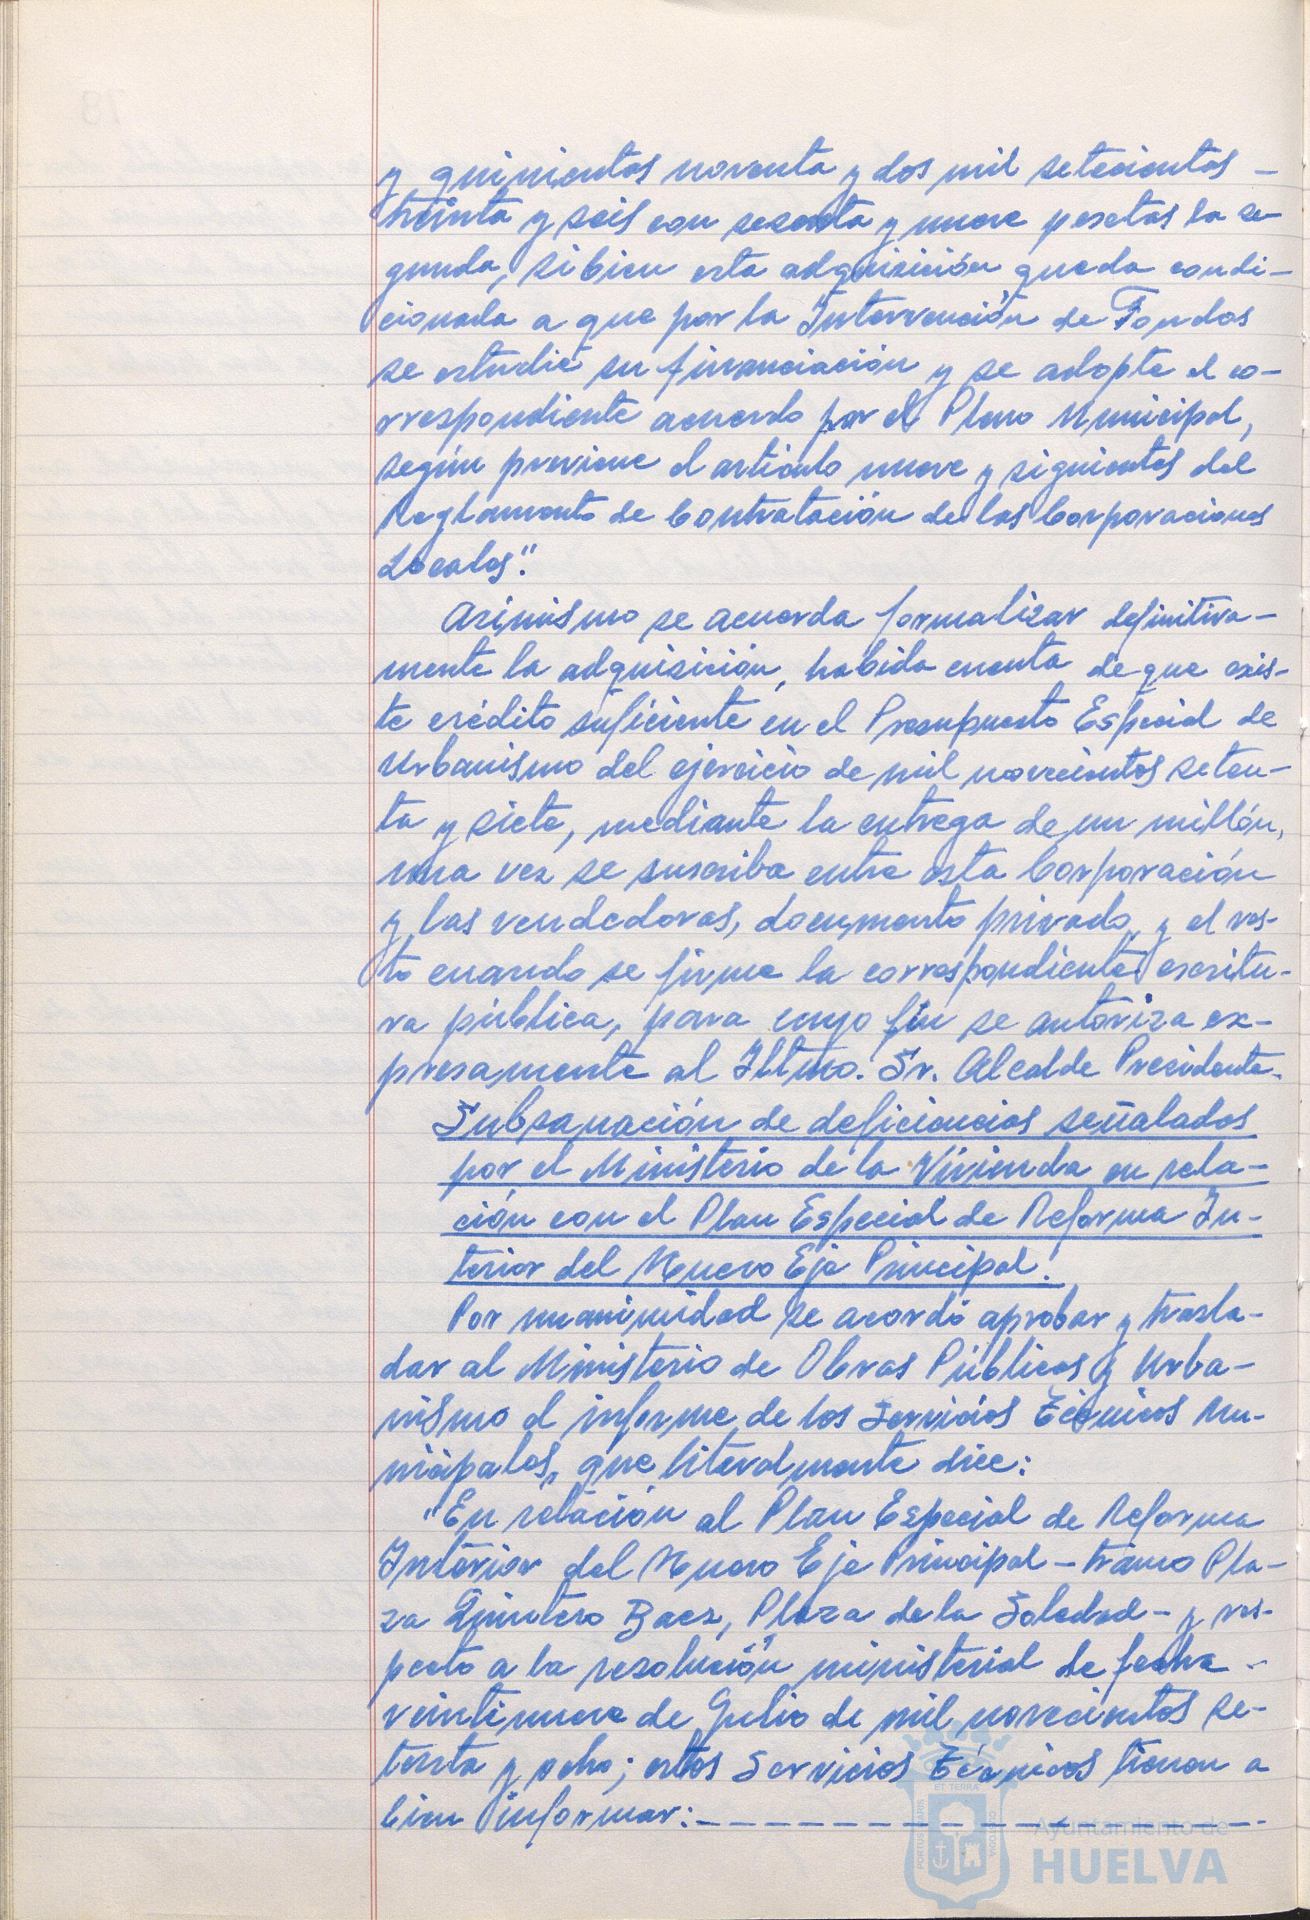 y quinientas noventa y dos mil setecientas –
treinta y seis con sesenta y nueve pesetas la se-
gunda, si bien esta adquisición queda condi-
cionada a que por la Intervención de Fondos
se estudie su financiación y se adopte el co-
rrespondiente acuerdo por el Pleno Municipal,
según previene el artículo nueve y siguientes del
Reglamento de Contratación de las Corporaciones
Locales".
Asimismo se acuerda formalizar definitiva-
mente la adquisición, habida cuenta de que exis-
te crédito suficiente en el Presupuesto Especial de
Urbanismo del ejercicio de mil novecientos seten-
ta y siete, mediante la entrega de un millón,
una vez se suscriba entre esta Corporación
y las vendedoras, documento privado, y el res-
to cuando se firme la correspondiente escritu-
ra pública, para cuyo fin se autoriza ex-
presamente al Iltmo. Sr. Alcalde Presidente.
Subsanación de deficiencias señaladas
por el Ministerio de la Vivienda en rela-
ción con el Plan Especial de Reforma In-
terior del Nuevo Eje Principal.
Por unanimidad se acordó aprobar y trasla-
dar al Ministerio de Obras Públicas y Urba-
nismo el informe de los Servicios Técnicos Mu-
nicipales, que literalmente dice:
"En relación al Plan Especial de Reforma
Interior del Nuevo Eje Principal – tramo Pla-
za Quintero Baez, Plaza de la Soledad – y res-
pecto a la resolución ministerial de fecha –
veintinueve de Julio de mil novecientos se-
tenta y ocho; estos Servicios Técnicos tienen a
bien informar: – – – – – – – – – – – – –
PORTUS MARIS
ET TERRAE
CUSTODIA
Ayuntamiento de
HUELVA